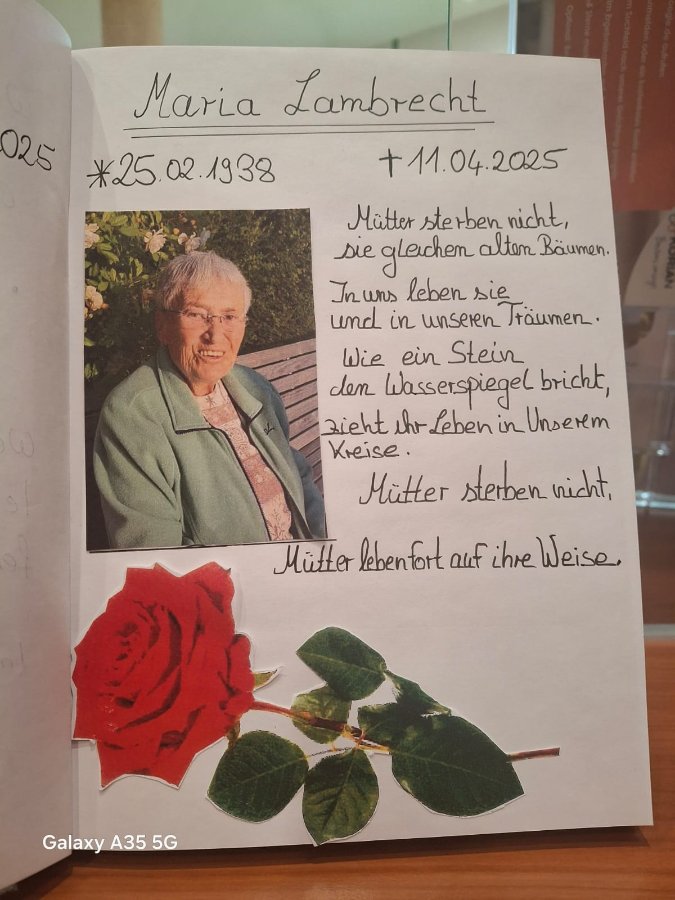 025
Maria Lambrecht
*25.02.1938
†11.04.2025
Mütter sterben nicht,
sie gleichen alten Bäumen.
In uns leben sie
und in unseren Träumen.
Wie ein Stein
den Wasserspiegel bricht,
zieht ihr Leben in Unserem
Kreise.
Mütter sterben nicht,
Mütter leben fort auf ihre Weise.
Galaxy A35 5G